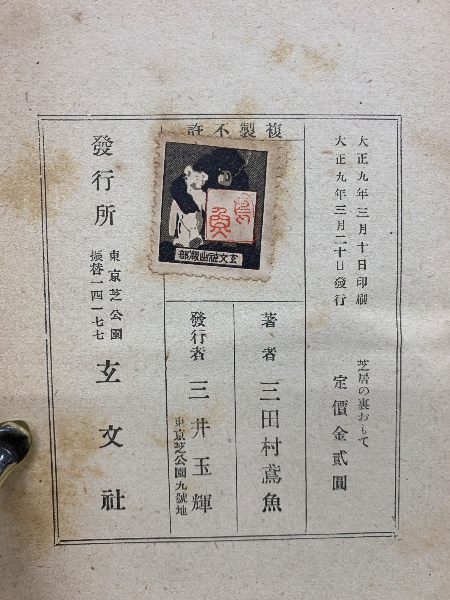 複製不許
大正九年三月十日印刷
大正九年三月二十日發行
芝居の裏おもて
定價金貳圓
著者 三田村鳶魚
發行者 三井玉輝
東京芝公園九號地
鳶魚
玄文社出版部
發行所
東京芝公園
振替一四一七七
玄文社